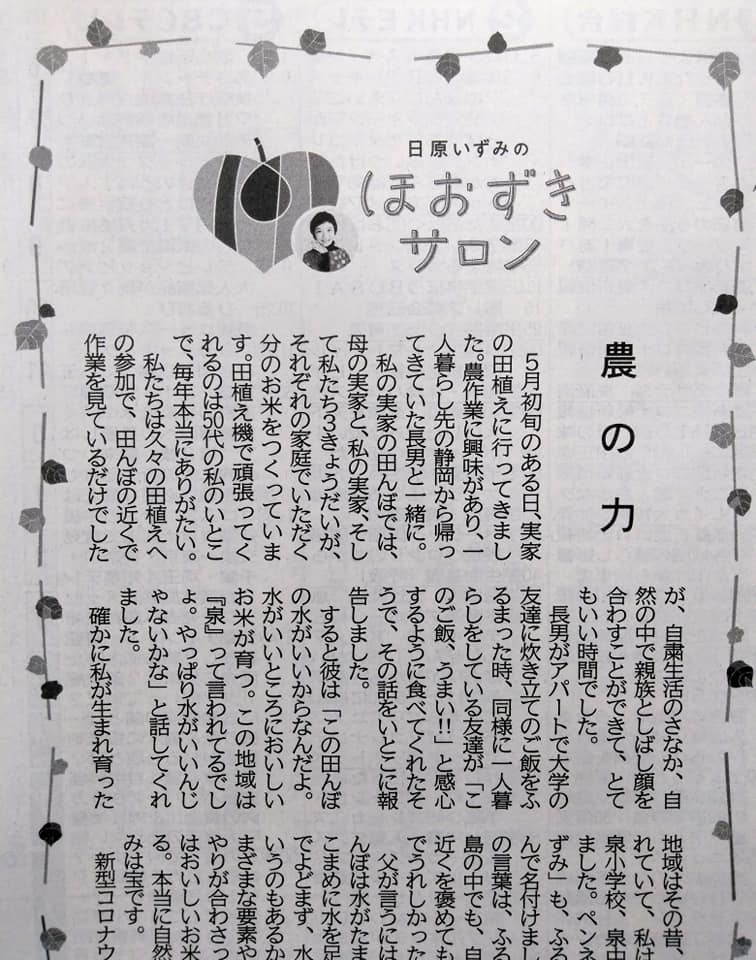 日原いずみの
ほおずき
サロン
農の力
５月初旬のある日、実家
の田植えに行ってきまし
た。農作業に興味があり、一
人暮らし先の静岡から帰っ
てきていた長男と一緒に。
私の実家の田んぼでは、
母の実家と、私の実家、そし
て私たち３きょうだいが、
それぞれの家庭でいただく
分のお米をつくっていま
す。田植え機で頑張ってく
れるのは50代の私のいとこ
で、毎年本当にありがたい。
私たちは久々の田植えへ
の参加で、田んぼの近くで
作業を見ているだけでした
が、自粛生活のさなか、自
然の中で親族としばし顔を
合わすことができて、とて
もいい時間でした。
長男がアパートで大学の
友達に炊き立てのご飯をふ
るまった時、同様に一人暮
らしをしている友達が「こ
のご飯、うまい!!」と感心
するように食べてくれたそ
うで、その話をいとこに報
告しました。
すると彼は「この田んぼ
の水がいいからなんだよ。
水がいいところにおいしい
お米が育つ。この地域は
『泉』って言われてるでし
ょ。やっぱり水がいいんじ
ゃないかな」と話してくれ
ました。
確かに私が生まれ育った
地域はその昔、
れていて、私は
泉小学校、泉中
ました。ペンネ
ずみ」も、ふる
んで名付けまし
の言葉は、ふる
島の中でも、自
近くを褒めても
でうれしかった
父が言うには
んぼは水がたま
こまめに水を足
でよどまず、水
いうのもあるか
まざまな要素や
やりが合わさっ
はおいしいお米
る。本当に自然
みは宝です。
新型コロナウ